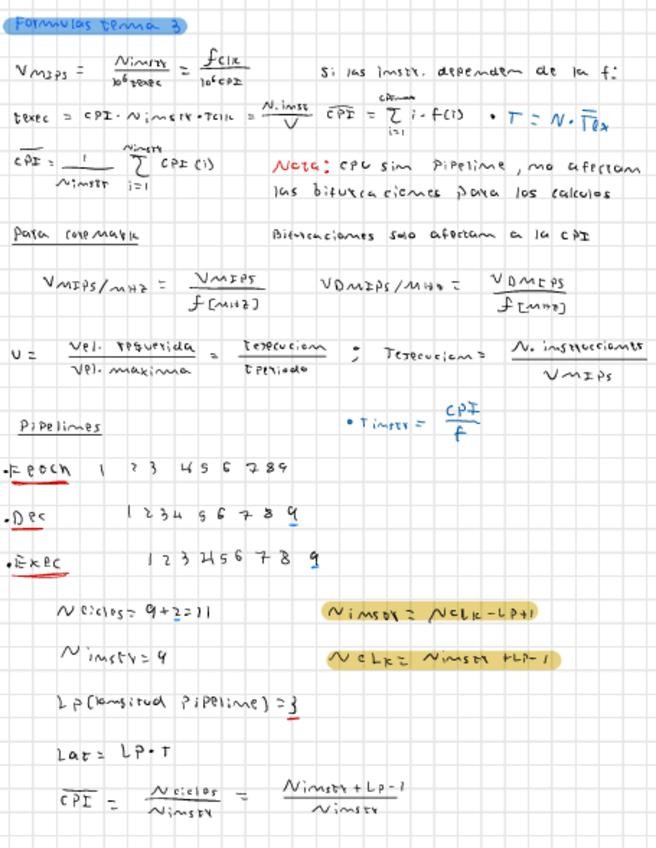 Formulas tema 3
VMIPS = Ninstr / 10⁶ texec = fclk / 10⁶ CPI
Si las instr. dependen de la f:
texec = CPI · Ninstr · Tclk = N.inst / V
CPI̅ = Σ i · f(i)
i=1
• T = N · T̅ex
CPI̅ = 1 / Ninstr Σ CPI(i)
Ninstr
i=1
Nota: CPU sin Pipeline, no afectan
las bifurcaciones para los calculos
Para coremark
Bifurcaciones solo afectan a la CPI
VMIPS/MHZ = VMIPS / f[MHZ]
VDMIPS/MHz = VDMIPS / f[MHz]
U = Vel. requerida / Vel. maxima = tejecucion / tperiodo ; Tejecucion = N. instrucciones / VMIPS
Pipelines
• Tinstr = CPI / f
• Fetch 1 2 3 4 5 6 7 8 9
• Dec 1 2 3 4 5 6 7 8 9
• Exec 1 2 3 4 5 6 7 8 9
Nciclos = 9+2=11
Ninstr = NCLK - LP+1
Ninstr = 9
NCLK = Ninstr + LP - 1
LP(longitud Pipeline) = 3
Lat = LP · T
CPI̅ = Nciclos / Ninstr = Ninstr + LP - 1 / Ninstr